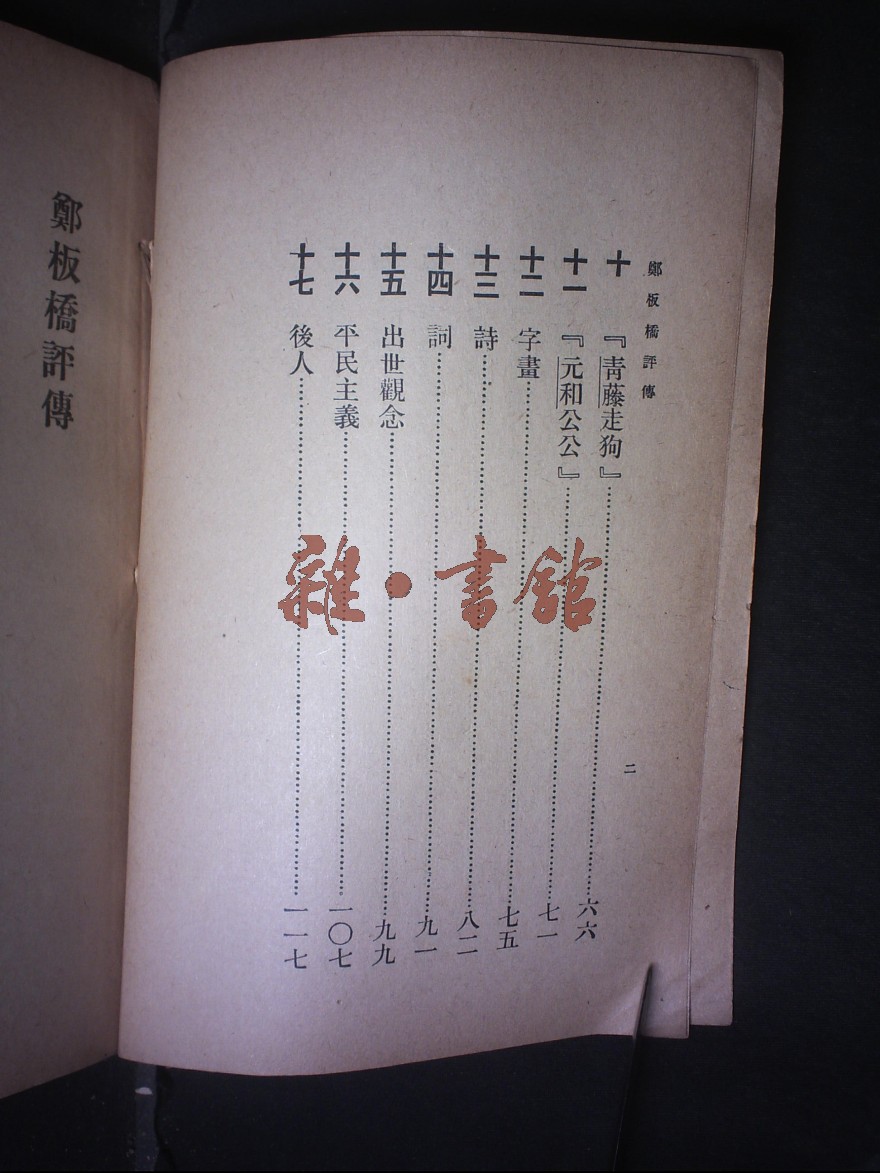 鄭板橋評傳
二
十 『靑藤走狗』……六六
十一 『元和公公』……七一
十二 字畫……七五
十三 詩……八二
十四 詞……九一
十五 出世觀念……九九
十六 平民主義……一〇七
十七 後人……一一七
鄭板橋評傳
雜·書館